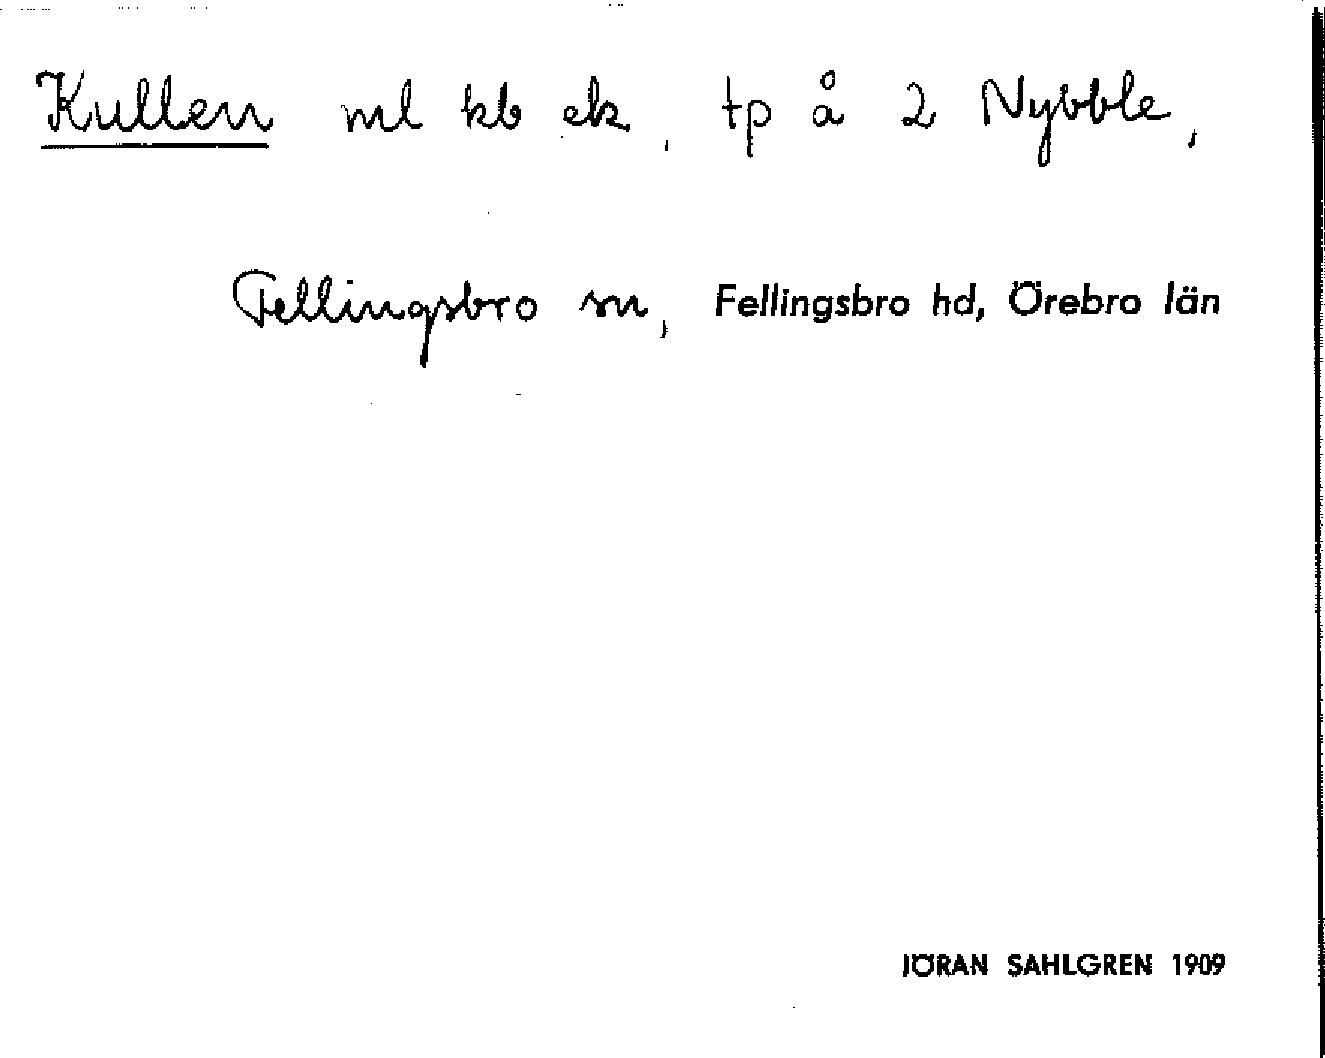 Kullen ml kb ek, tp å 2 Nybble,
Fellingsbro sn, Fellingsbro hd, Örebro län
JÖRAN SAHLGREN 1909